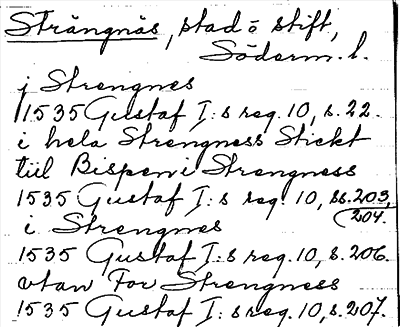 Strängnäs, stad o stift,
Söderm. l.
j Strengnes
1535 Gustaf I:s reg. 10, s. 22.
i hela Strengness Stickt
tiil Bispen i Strengness
1535 Gustaf I:s reg. 10, ss. 203,
204.
i Strengnes
1535 Gustaf I:s reg. 10, s. 206.
vtan För Strengness
1535 Gustaf I:s reg. 10, s. 207.